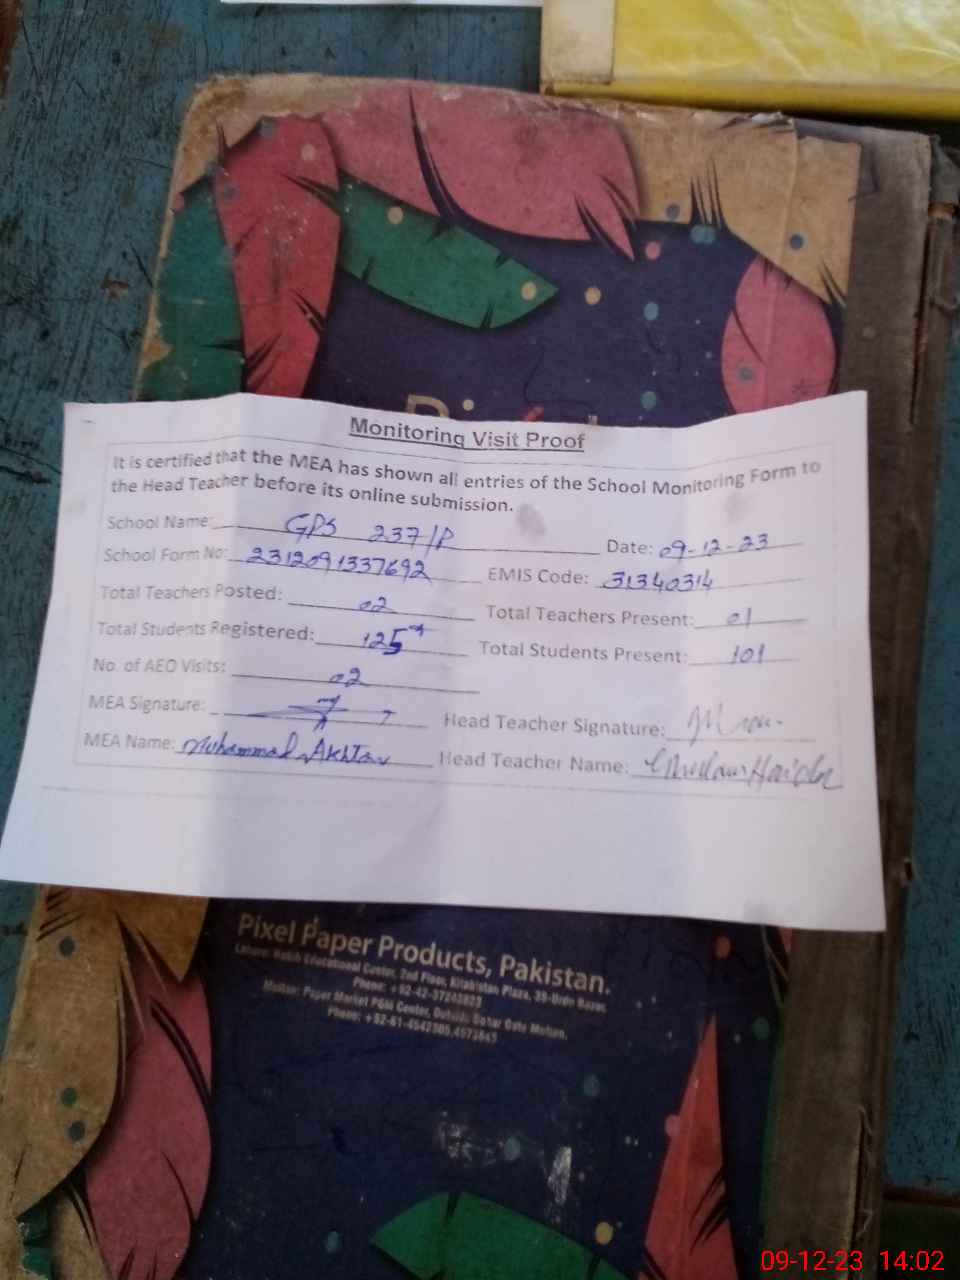 Monitoring Visit Proof
It is certified that the MEA has shown all entries of the School Monitoring Form to
the Head Teacher before its online submission.
School Name: GPS 237/P Date: 09-12-23
School Form No: 2312091337692 EMIS Code: 31340314
Total Teachers Posted: 02 Total Teachers Present: 01
Total Students Registered: 125 Total Students Present: 101
No. of AEO Visits: 02
MEA Signature: Head Teacher Signature:
MEA Name: Muhammad Akhtar Head Teacher Name: Ghulam Haider
Pixel Paper Products, Pakistan.
Lahore: Habib Educational Center, 2nd Floor, Kitabistan Plaza, 38-Urdu Bazar.
Phone: +92-42-37243823
Multan: Paper Market PGM Center, Outside Bohar Gate Multan.
Phone: +92-61-4542305,4573643
09-12-23 14:02